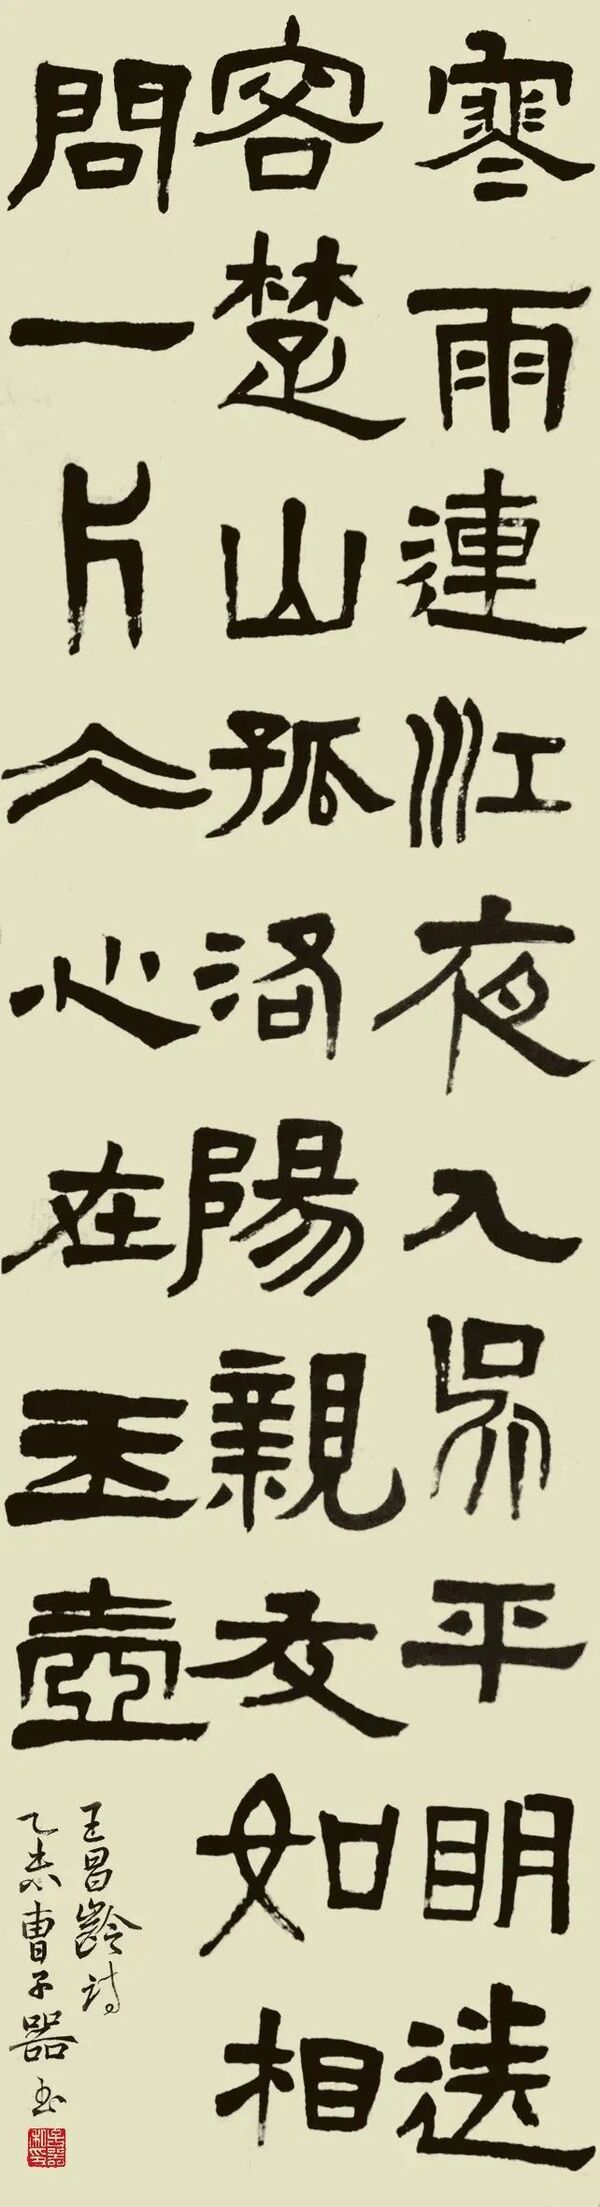 寒雨連江夜入吳平明送
客楚山孤洛陽親友如相
問一片仌心在玉壺
王昌齡詩
乙未曹子器书